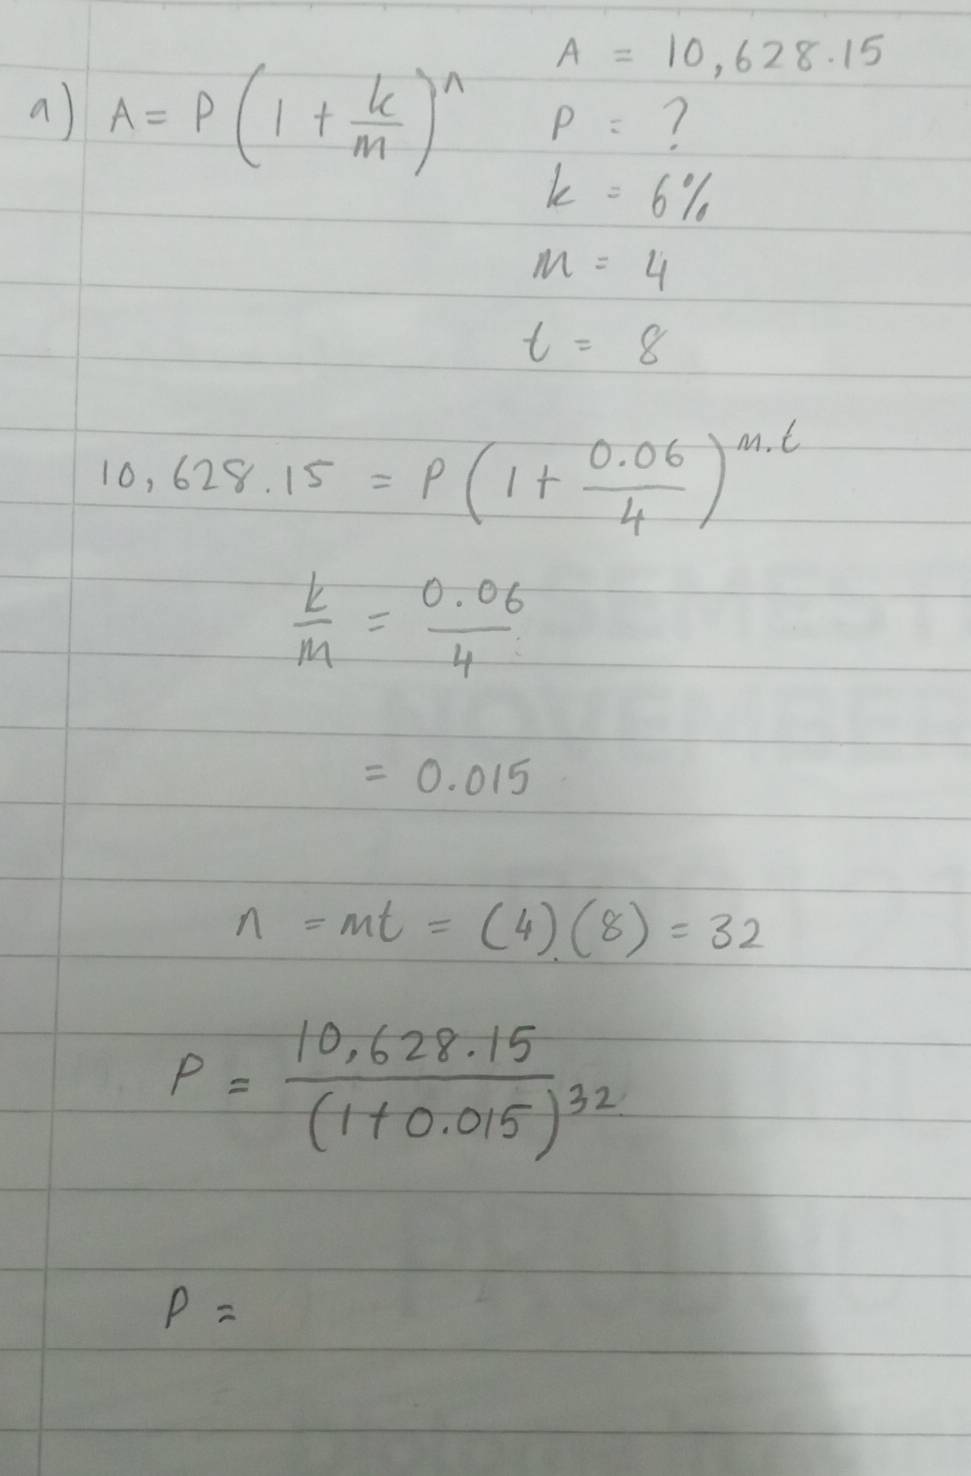 A = 10,628.15
a) A = P(1 + k/m)^n
P = ?
k = 6%
m = 4
t = 8
10,628.15 = P(1 + 0.06/4)^m.t
k/m = 0.06/4
= 0.015
n = mt = (4)(8) = 32
P = 10,628.15/(1+0.015)^32
P =